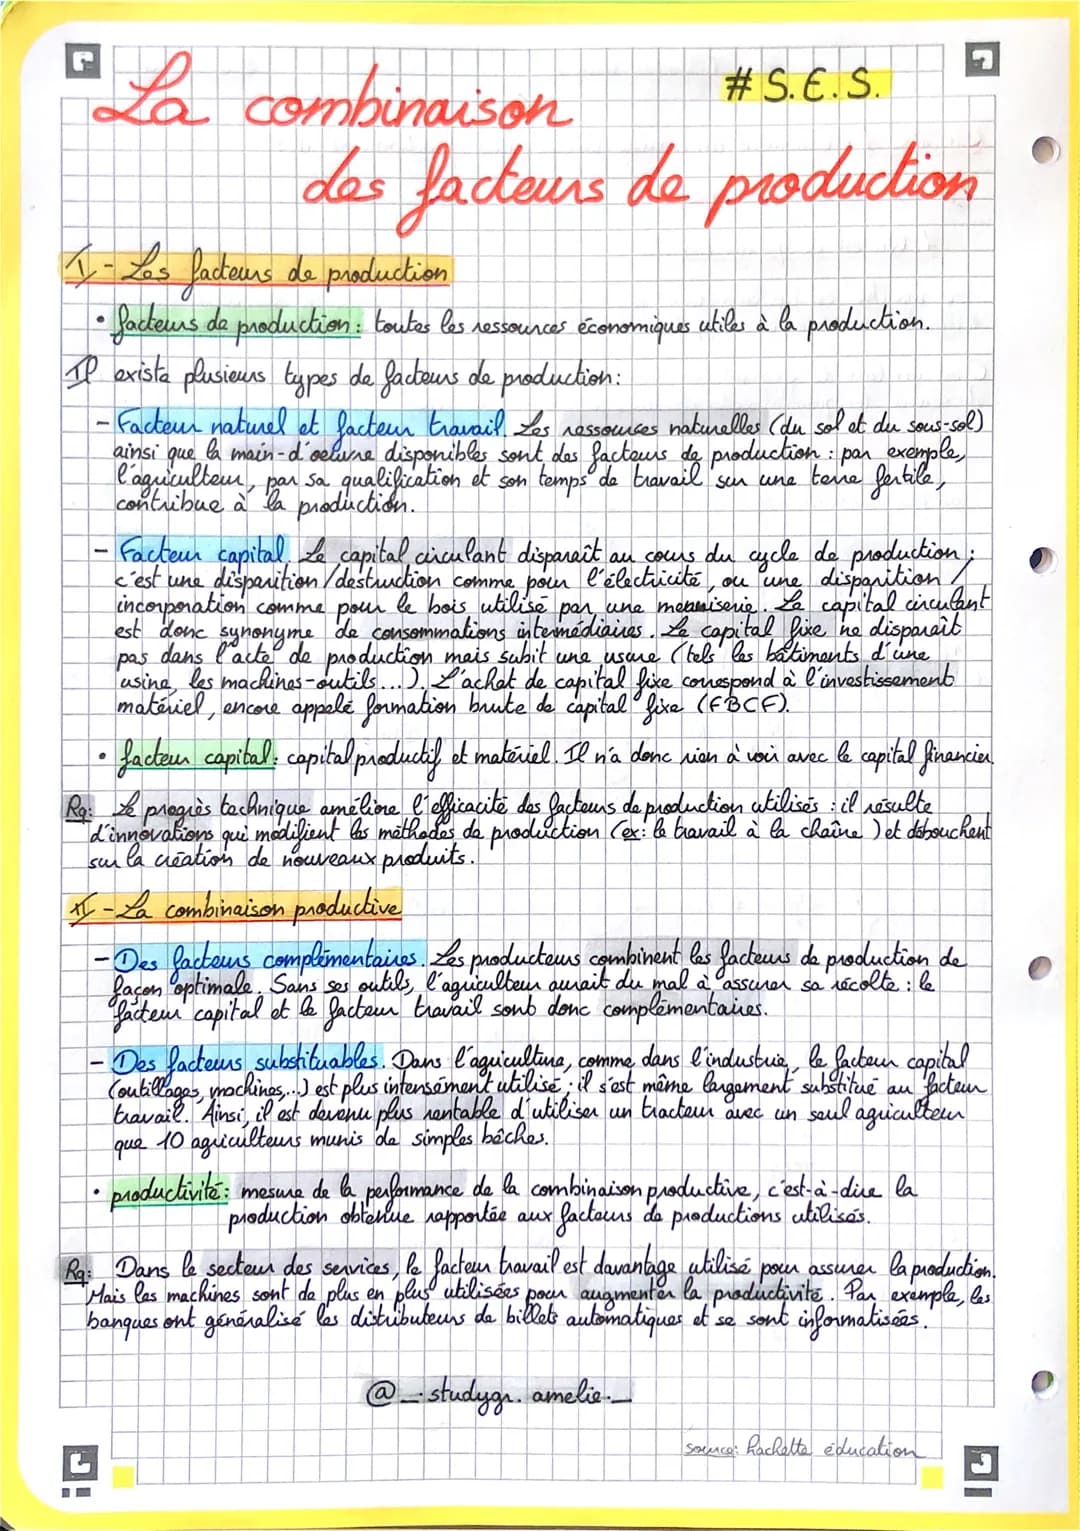 # S.E.S.
La combinaison
des facteurs de production
I - Les facteurs de production
• facteurs de production : toutes les ressources économiques utiles à la production.
Il existe plusieurs types de facteurs de production :
- Facteur naturel et facteur travail. Les ressources naturelles (du sol et du sous-sol)
ainsi que la main-d'oeuvre disponibles sont des facteurs de production : par exemple,
l'agriculteur, par sa qualification et son temps de travail sur une terre fertile,
contribue à la production.
- Facteur capital. Le capital circulant disparaît au cours du cycle de production ;
c'est une disparition/destruction comme pour l'électricité, ou une disparition/
incorporation comme pour le bois utilisé par une menuiserie. Le capital circulant
est donc synonyme de consommations intermédiaires. Le capital fixe ne disparaît
pas dans l'acte de production mais subit une usure (tels les bâtiments d'une
usine, les machines-outils...). L'achat de capital fixe correspond à l'investissement
matériel, encore appelé formation brute de capital fixe (FBCF).
• facteur capital : capital productif et matériel. Il n'a donc rien à voir avec le capital financier.
Rq : Le progrès technique améliore l'efficacité des facteurs de production utilisés : il résulte
d'innovations qui modifient les méthodes de production (ex : le travail à la chaîne) et débouchent
sur la création de nouveaux produits.
II - La combinaison productive
- Des facteurs complémentaires. Les producteurs combinent les facteurs de production de
façon optimale. Sans ses outils, l'agriculteur aurait du mal à assurer sa récolte : le
facteur capital et le facteur travail sont donc complémentaires.
- Des facteurs substituables. Dans l'agriculture, comme dans l'industrie, le facteur capital
(outillages, machines,...) est plus intensément utilisé ; il s'est même largement substitué au facteur
travail. Ainsi, il est devenu plus rentable d'utiliser un tracteur avec un seul agriculteur
que 10 agriculteurs munis de simples bêches.
• productivité : mesure de la performance de la combinaison productive, c'est-à-dire la
production obtenue rapportée aux facteurs de productions utilisés.
Rq : Dans le secteur des services, le facteur travail est davantage utilisé pour assurer la production.
Mais les machines sont de plus en plus utilisées pour augmenter la productivité. Par exemple, les
banques ont généralisé les distributeurs de billets automatiques et se sont informatisées.
@_.studygr.amelie._
source : hachette éducation